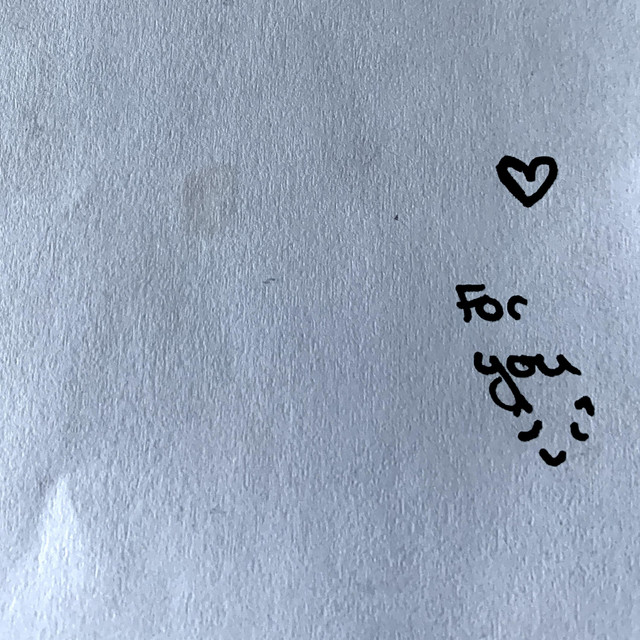 For
you